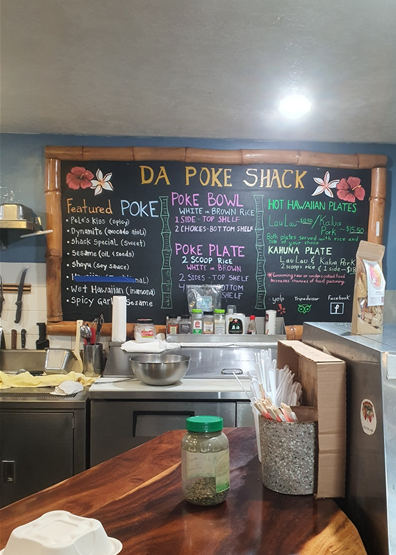 DA POKE SHACK
Featured POKE
Pele's Kiss (spicy)
Dynamite (avocado aioli)
Shack Special (sweet)
Sesame (oil & seeds)
Shoyu (soy sauce)
Wet Hawaiian (inamona)
Spicy garlic Sesame
POKE BOWL
WHITE or BROWN RICE
1 SIDE - TOP SHELF
2 CHOICES - BOTTOM SHELF
POKE PLATE
2 SCOOP RICE
WHITE or BROWN
2 SIDES - TOP SHELF
SHELF
HOT HAWAIIAN PLATES
Lau Lau / Kalua
Pork
Both plates served with rice and
side of your choice
KAHUNA PLATE
Lau Lau & Kalua Pork
2 scoops rice & 1 side
Consuming raw or undercooked food
increases chances of food poisoning
yelp
Tripadvisor
Facebook
f